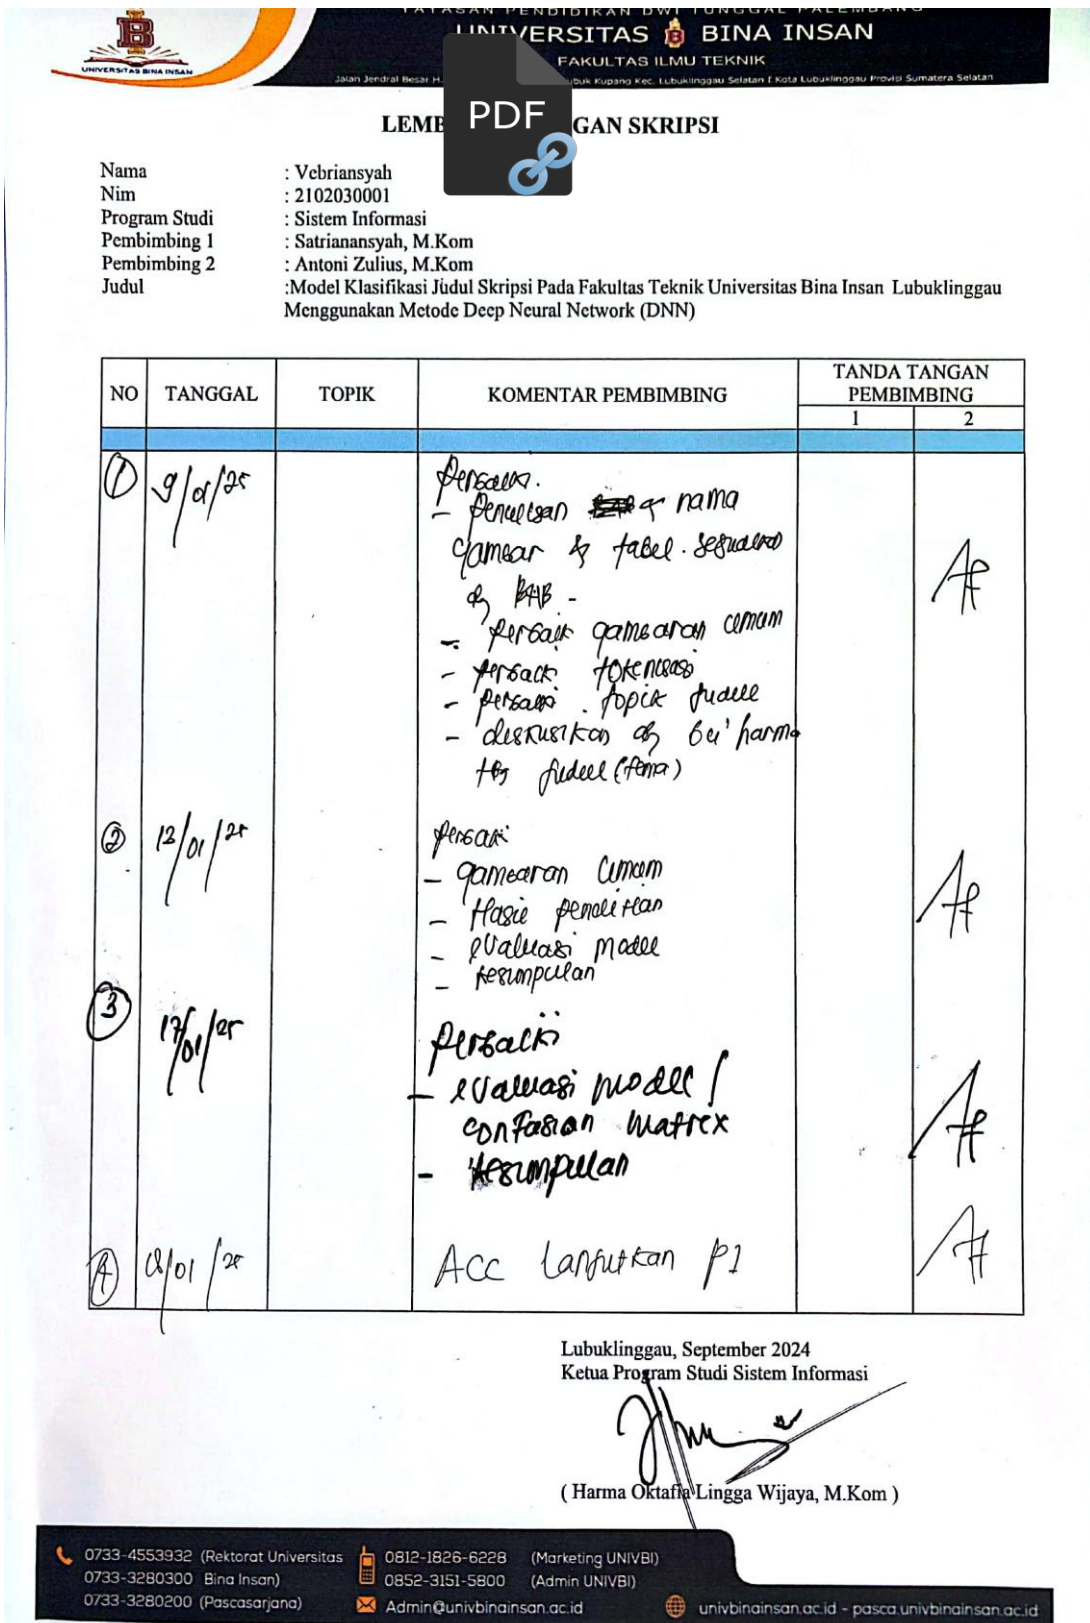 YAYASAN PENDIDIKAN DWI TUNGGAL PALEMBANG
UNIVERSITAS BINA INSAN
FAKULTAS ILMU TEKNIK
Jalan Jendral Besar H. Kupang Kec. Lubuklinggau Selatan I Kota Lubuklinggau Provisi Sumatera Selatan
UNIVERSITAS BINA INSAN
PDF
LEMB GAN SKRIPSI
Nama : Vebriansyah
Nim : 2102030001
Program Studi : Sistem Informasi
Pembimbing 1 : Satriananсyah, M.Kom
Pembimbing 2 : Antoni Zulius, M.Kom
Judul :Model Klasifikasi Judul Skripsi Pada Fakultas Teknik Universitas Bina Insan Lubuklinggau
Menggunakan Metode Deep Neural Network (DNN)
NO TANGGAL TOPIK KOMENTAR PEMBIMBING TANDA TANGAN PEMBIMBING
1 2
1 9/01/25 Perbaiki.
- Penulisan nama
gambar & tabel. sesuaikan
dg BAB -
- perbaiki gambaran umum
- perbaiki tokenisasi
- perbaiki topik judul
- diskusikan dg bu' harma
ttg judul (tema)
2 13/01/25 perbaiki
- gambaran umum
- Hasil penelitian
- evaluasi model
- kesimpulan
3 17/01/25 perbaiki
- evaluasi model /
confusion matrex
- kesimpulan
4 18/01/25 ACC lanjutkan P1
Lubuklinggau, September 2024
Ketua Program Studi Sistem Informasi
( Harma Oktafia Lingga Wijaya, M.Kom )
0733-4553932 (Rektorat Universitas
0733-3280300 Bina Insan)
0733-3280200 (Pascasarjana)
0812-1826-6228 (Marketing UNIVBI)
0852-3151-5800 (Admin UNIVBI)
Admin@univbinainsan.ac.id
univbinainsan.ac.id - pasca.univbinainsan.ac.id